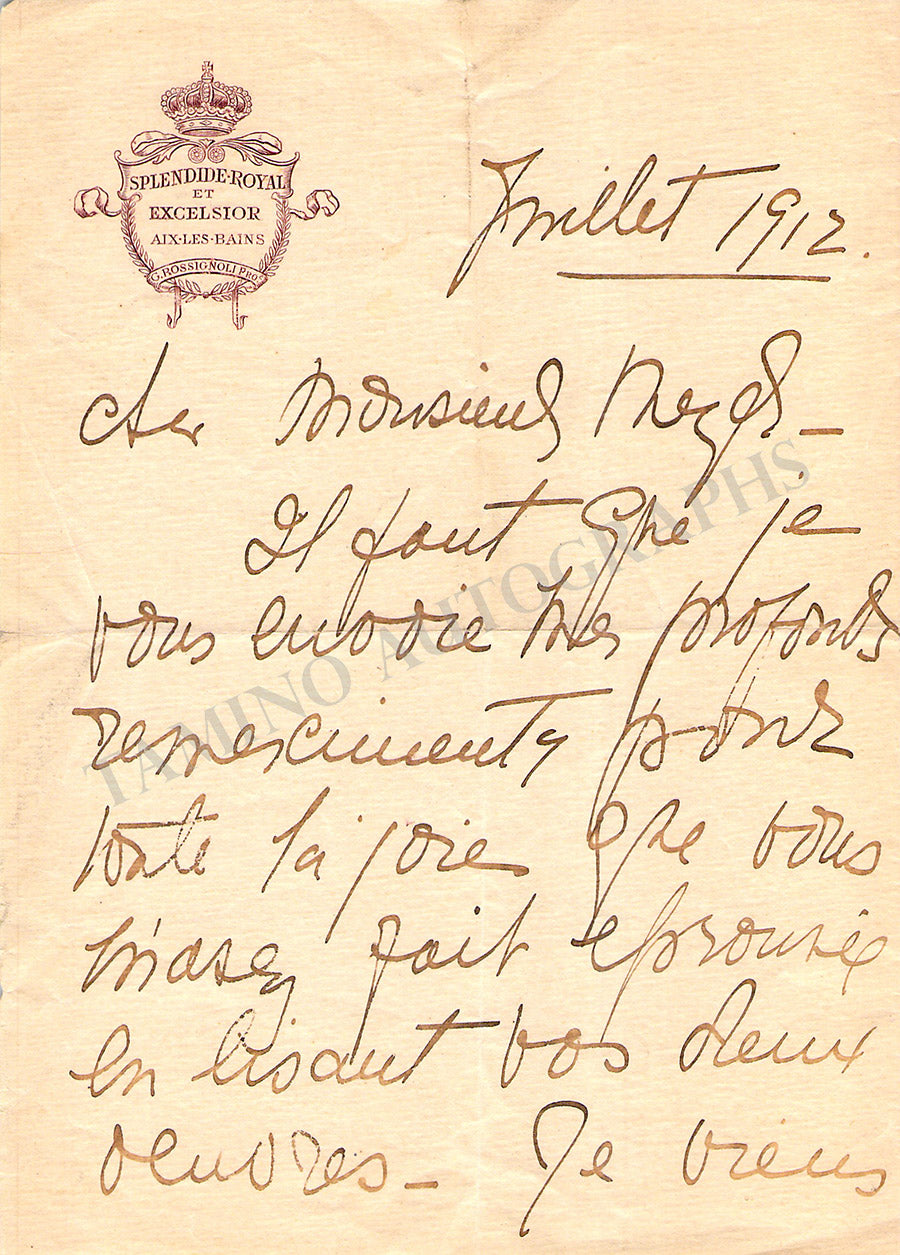 SPLENDIDE-ROYAL
ET
EXCELSIOR
AIX-LES-BAINS
G. ROSSIGNOLI PROP.
Juillet 1912.
cher Monsieur
Il faut que je
vous envoie mes profonds
remerciments pour
toute la joie que vous
m'avez fait eprouvée
en lisant vos deux
oeuvres - Je viens
TAMINO AUTOGRAPHS